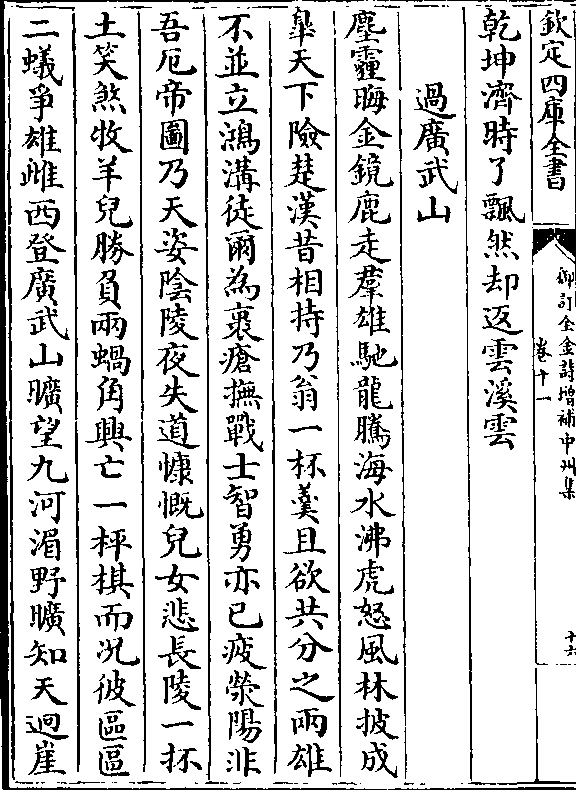 欽定四庫全書
御訂全金詩增補中州集
卷十一
十六
乾坤濟時了飄然却返雲溪雲
過廣武山
塵霾晦金鏡鹿走羣雄馳龍騰海水沸虎怒風林披成
皐天下險楚漢昔相持乃翁一杯羮且欲共分之兩雄
不並立鴻溝徒爾為裹瘡撫戰士智勇亦已疲滎陽非
吾厄帝圖乃天姿陰陵夜失道慷慨兒女悲長陵一抔
土笑煞牧羊兒勝負兩蝸角興亡一枰棋而况彼區區
二蟻爭雄雌西登廣武山曠望九河湄野曠知天迥崖